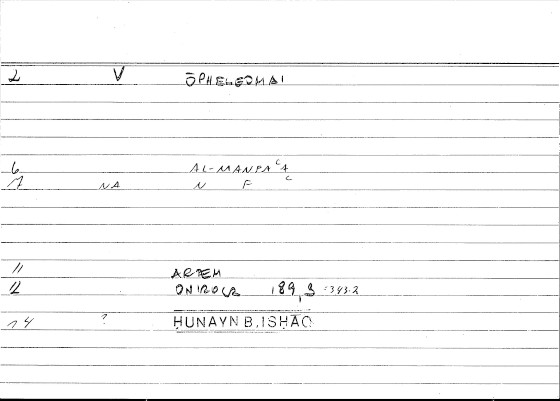 2 V ŌPHELEOMAI
6 AL-MANFAʿA
7 NA N F ʿ
11 ARTEM
12 ONIROCR 189,3 =343.2
14 ? ḤUNAYN B. ISḤĀQ